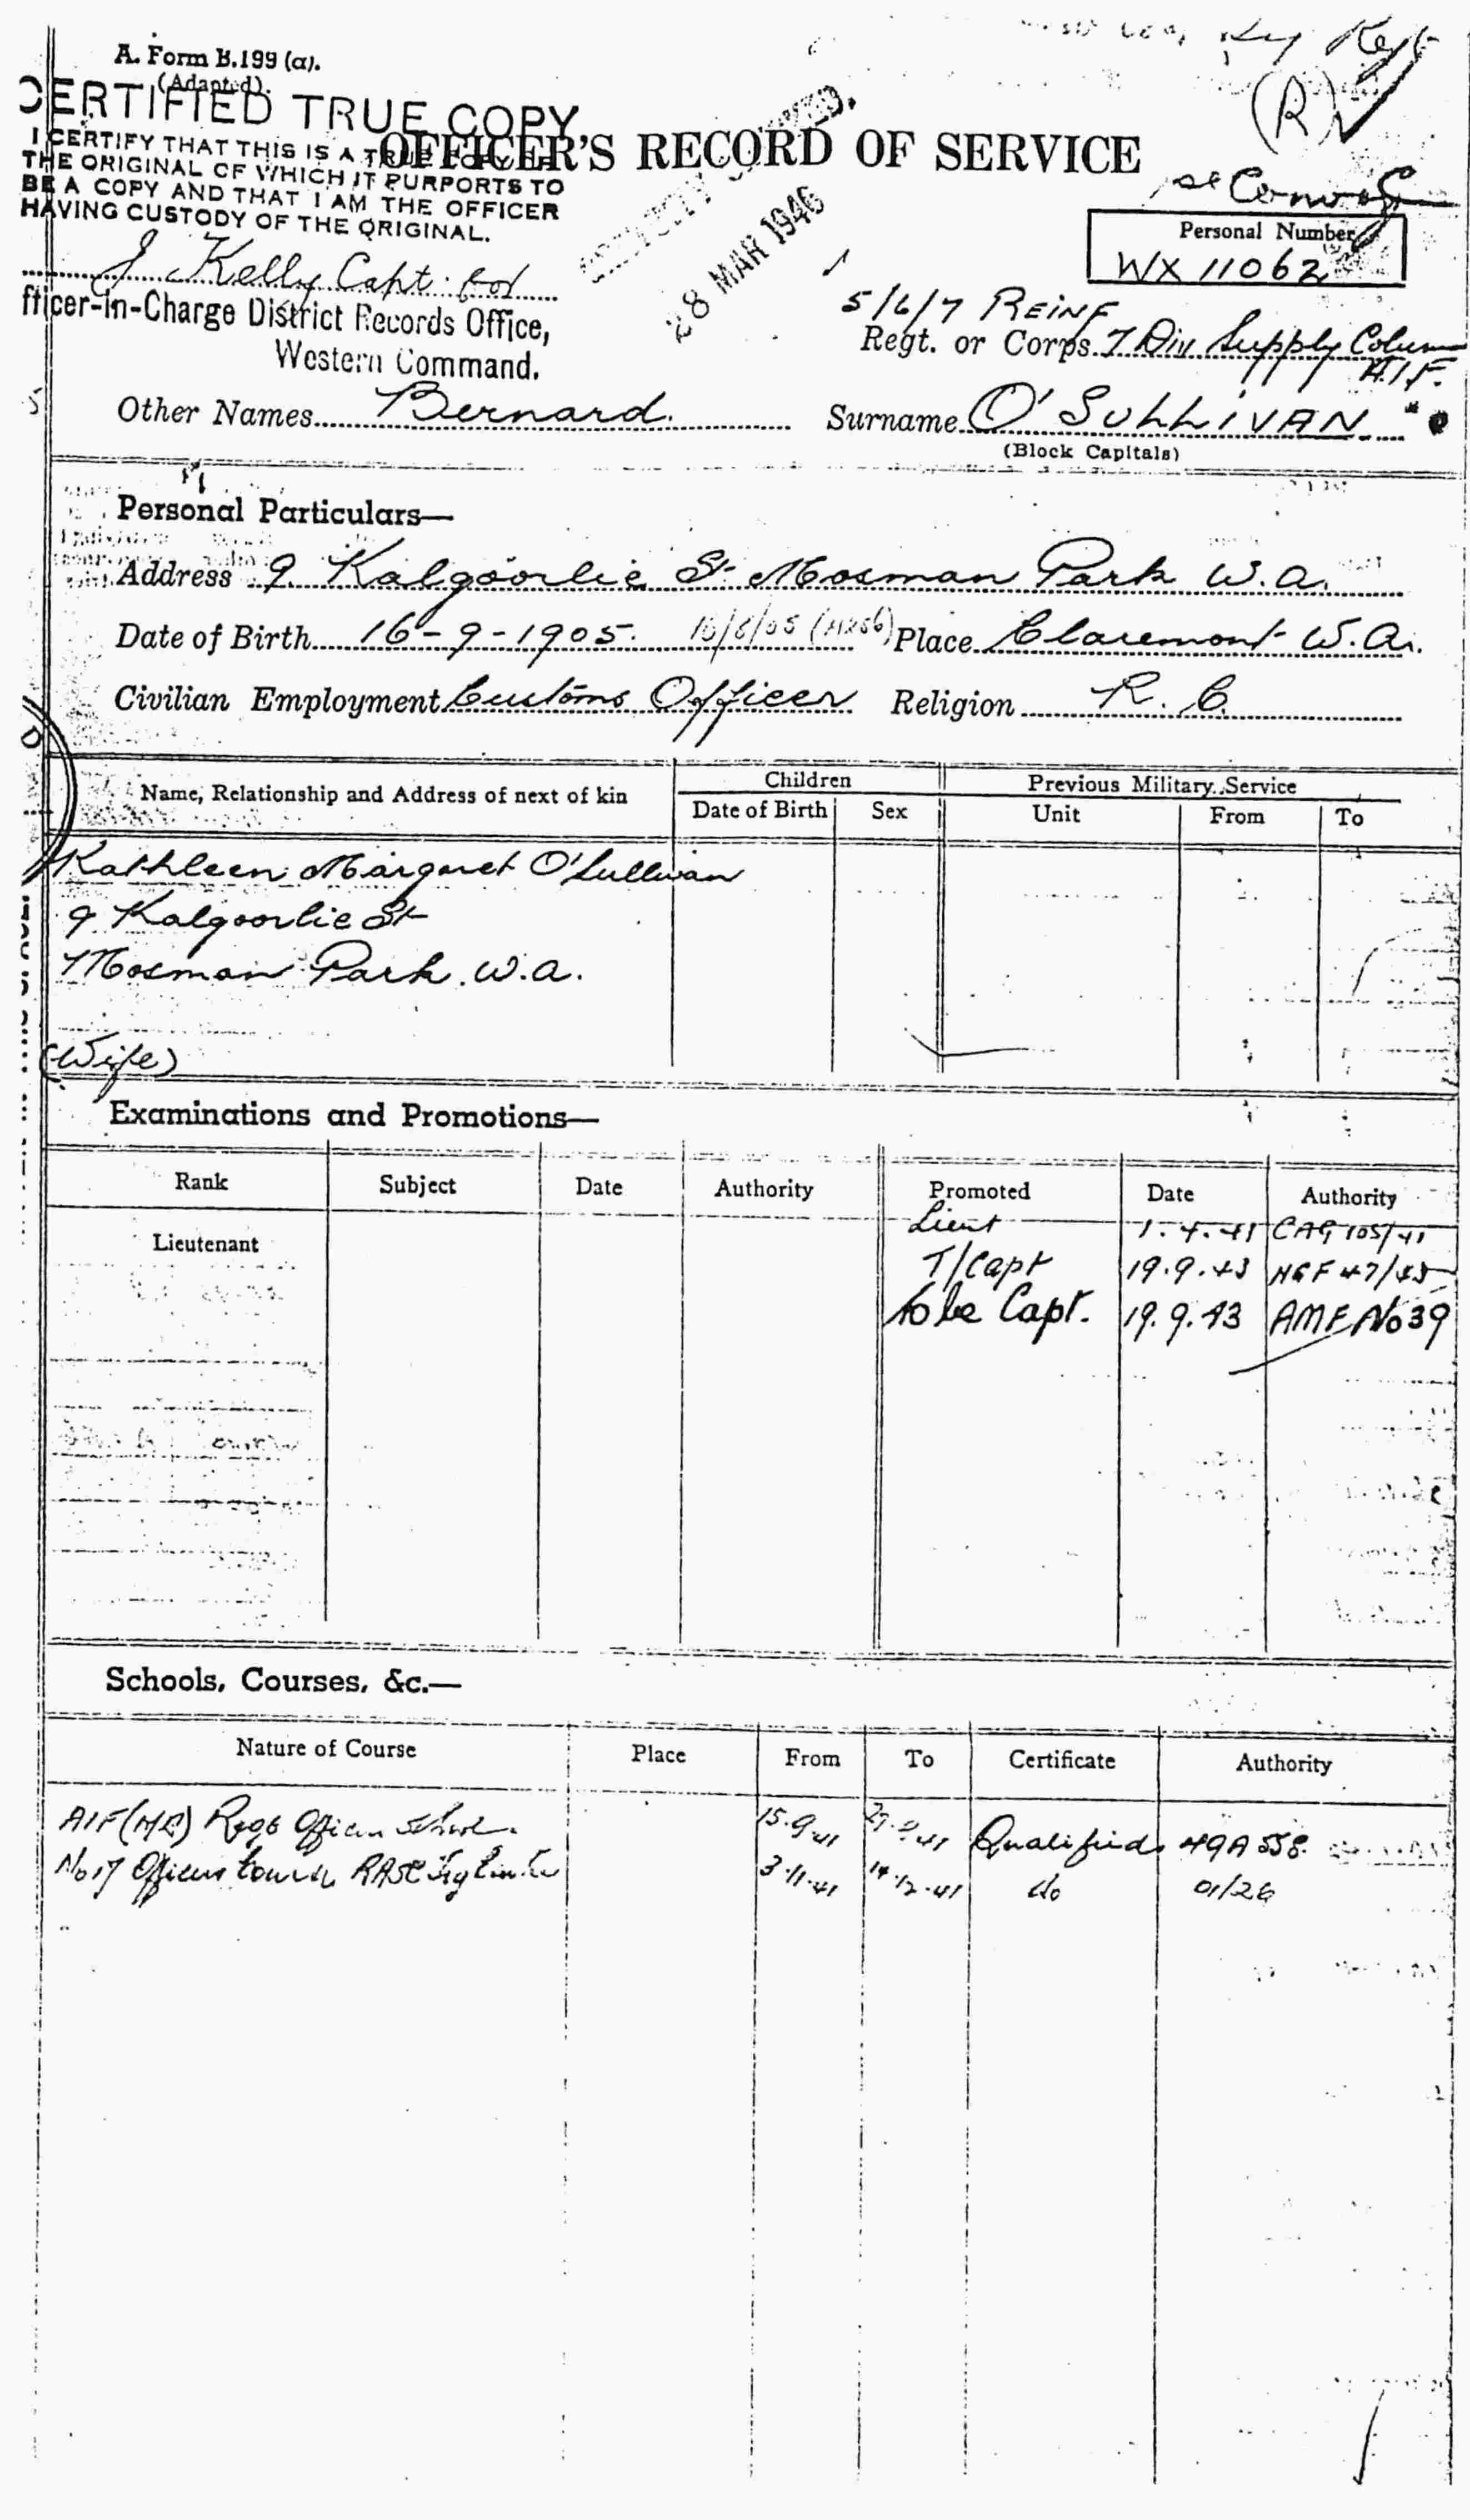 A. Form B.199 (a).
(Adapted).
CERTIFIED TRUE COPY
I CERTIFY THAT THIS IS A TRUE COPY OF
THE ORIGINAL OF WHICH IT PURPORTS TO
BE A COPY AND THAT I AM THE OFFICER
HAVING CUSTODY OF THE ORIGINAL.
J Kelly Capt. for
fficer-in-Charge District Records Office,
Western Command.
OFFICER'S RECORD OF SERVICE
28 MAR 1946
(R)
Personal Number
WX 11062
5/6/7 REINF
Regt. or Corps 7 Div Supply Column
A.I.F.
Other Names Bernard. Surname O'SULLIVAN
(Block Capitals)
Personal Particulars—
Address 9 Kalgoorlie St Mosman Park W.A.
Date of Birth 16-9-1905. Place Claremont W.A.
Civilian Employment Customs Officer Religion R. C.
Name, Relationship and Address of next of kin Children Previous Military Service
Date of Birth Sex Unit From To
Kathleen Margaret O'Sullivan
9 Kalgoorlie St
Mosman Park. W.A.
(Wife)
Examinations and Promotions—
Rank Subject Date Authority Promoted Date Authority
Lieut 1.4.41 CAG 105/41
Lieutenant
T/Capt 19.9.43
to be Capt. 19.9.43 AMF No 39
Schools, Courses, &c.—
Nature of Course Place From To Certificate Authority
AIF (ME) Regt Officers School. 15.9.41 Qualified
No 17 Officers Course RASC 3.11.41 14.12.41 do 01/26